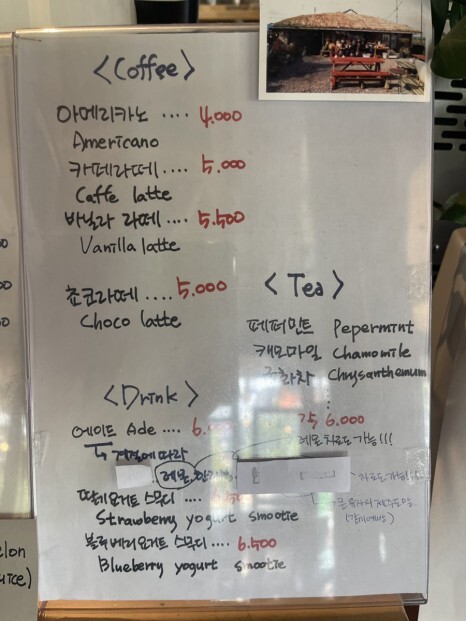 <Coffee>
아메리카노 .... 4.000
Americano
카페라떼.... 5.000
Caffe latte
바닐라 라떼.... 5.500
Vanilla latte
쵸코라떼.... 5.000
Choco latte
<Tea>
페퍼민트 Pepermint
캐모마일 Chamomile
Chrysanthemum
각 6.000
레몬차로도 가능!!!
<Drink>
에이드 Ade ....
계절에 따라
레몬
딸기요거트 스무디 ....
Strawberry yogurt smootie
블루베리요거트 스무디.... 6.500
Blueberry yogurt smootie